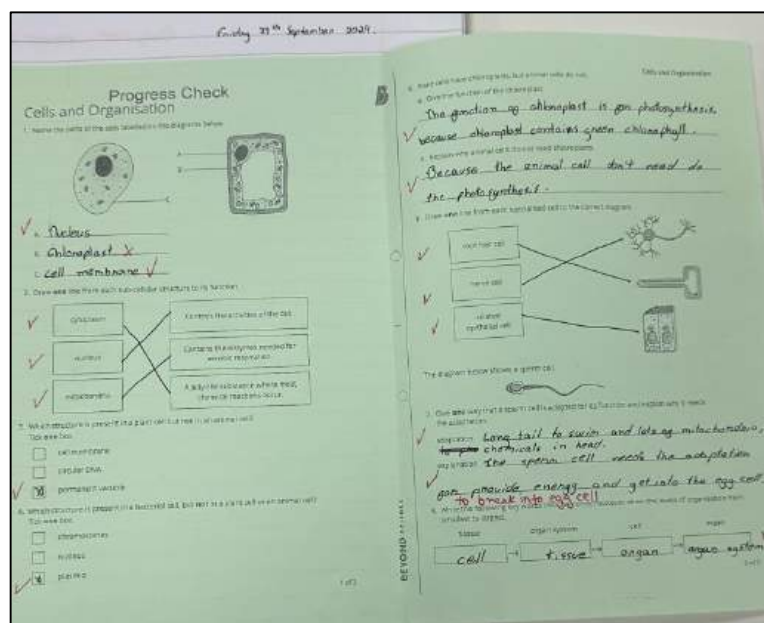 Friday 27th September 2024.
Progress Check
Cells and Organisation
1. Name the parts of the cells labelled on the diagrams below.
A
B
C
A. Nucleus
B. Chloroplast
C. Cell membrane
2. Draw one line from each sub-cellular structure to its function.
cytoplasm
Controls the activities of the cell.
nucleus
Contains the enzymes needed for
aerobic respiration.
mitochondria
A jelly-like substance where most
chemical reactions occur.
3. Which structure is present in a plant cell but not in an animal cell?
Tick one box.
cell membrane
circular DNA
permanent vacuole
4. Which structure is present in a bacterial cell, but not in a plant cell or an animal cell?
Tick one box.
chromosomes
nucleus
plasmid
1 of 2
BEYOND SCIENCE
Cells and Organisation
5. Plant cells have chloroplasts, but animal cells do not.
a. Give the function of the chloroplast.
The function of chloroplast is for photosynthesis,
because chloroplast contains green chlorophyll.
Because the animal cell don't need do
the photosynthesis.
6. Draw one line from each specialised cell to the correct diagram.
root hair cell
nerve cell
ciliated
epithelial cell
The diagram below shows a sperm cell.
7. Give one way that a sperm cell is adapted for its function and explain why it needs
the adaptation.
adaptation: Long tail to swim and lots of mitochondria,
chemicals in head.
explanation: The sperm cell needs the adaptation
for provide energy and get into the egg cell.
to break into egg cell
smallest to largest.
tissue
organ system
cell
organ
cell
tissue
organ
organ system